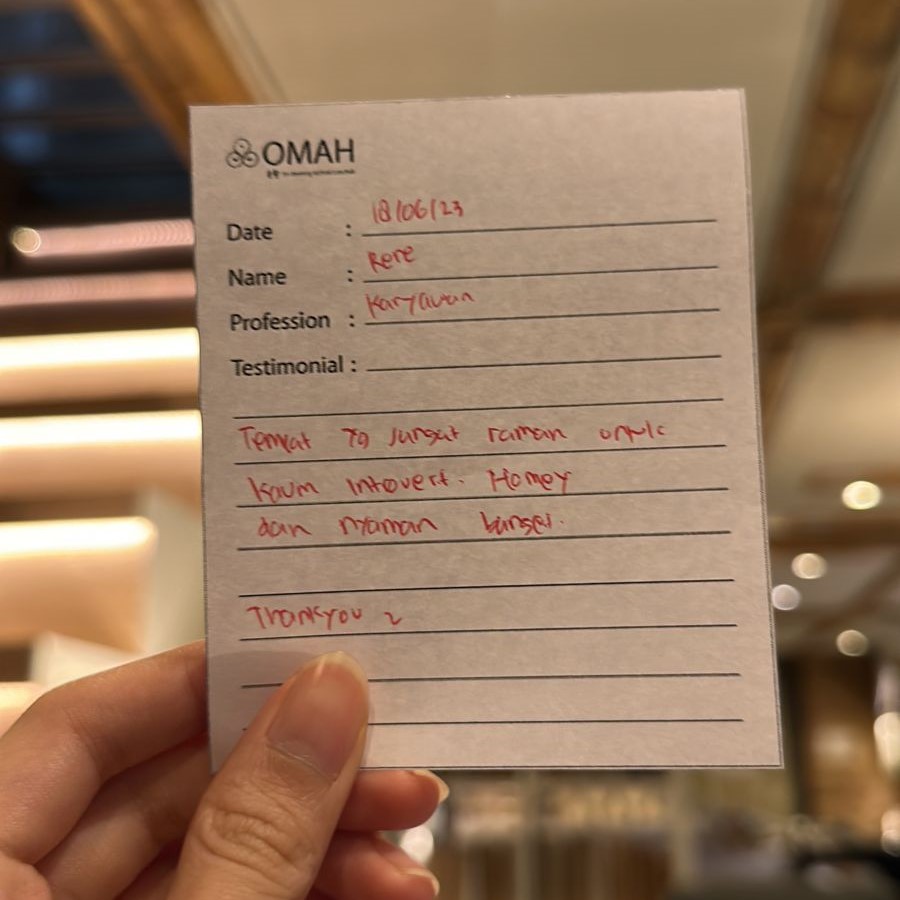 OMAH
Date : 18/06/23
Name : Rere
Profession : Karyawan
Testimonial :
Tempat yg sangat raman untuk
kaum introvert. Homey
dan nyaman bangsai.
Thankyou 2